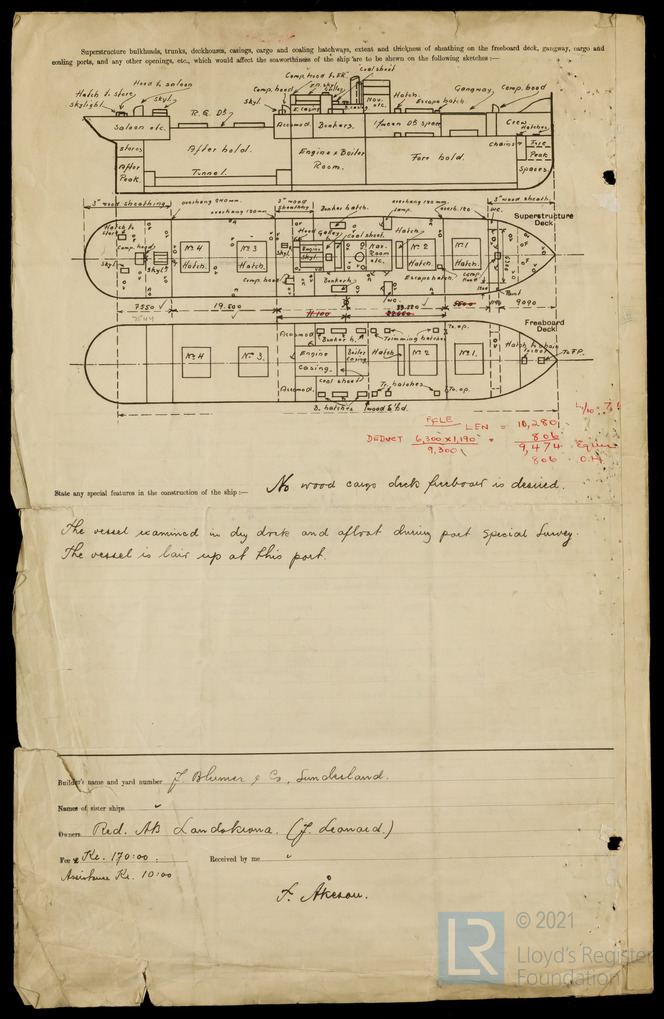 Superstructure bulkheads, trunks, deckhouses, casings, cargo and coaling hatchways, extent and thickness of sheathing on the freeboard deck, gangway, cargo and
coaling ports, and any other openings, etc., which would affect the seaworthiness of the ship are to be shewn on the following sketches :—
Coal shoot
Comp. hood to E.R.
Hood to saloon
Hatch to store
Skylight
Skyl.
R.Q. Dk
Skyl.
Comp. hood
E. Casing
Galley
Casing
Nav. Room etc.
Hatch.
Escape hatch
Gangway
Comp. hood
Saloon etc.
Accomod.
Bunkers.
Crew
Hatches
Stores
After hold.
Engine & Boiler
Room.
Fore hold.
Chains
Fore
Peak
Spaces
After
Peak.
Tunnel.
3" wood sheathing
overhang 240 mm.
overhang 120 mm.
3" wood sheathing
Bunker hatch.
overhang 120 mm.
overh. 120
3" wood sheath.
W.C.
Superstructure
Deck
Hatch to
store
Comp. hood
Skyl.
Skyl.
No 4
Hatch.
No 3
Hatch.
Skyl.
Comp. hood
Hood
Galley
Coal shoot.
Engine
Skyl.
Bunker h.
Nav.
Room
etc.
Hatch
No 2
Hatch.
No 1
Hatch.
Escape hatch
Comp.
hood
W.C.
Paint
7550
19.500
11.100
9090
7544
Freeboard
Deck
No 4
No 3.
Accomod.
Bunker h.
Trimming hatches
To op.
Engine
Casing.
Boiler
Casing.
Hatch
No 2
No 1.
Hatch to chain
locker
To F.P.
Coal shoot
Accomod.
Tr. hatches
To op.
B. hatches
wood b'hd.
FCLE LEN = 10,280
DEDUCT 6,300 x 1,190 = 806
9,300
9,474
806 O.H.
State any special features in the construction of the ship :—
No wood cargo deck freeboard is desired.
The vessel examined in dry dock and afloat during part Special Survey.
The vessel is lair up at this port.
Builder's name and yard number J. Blumer & Co, Sunderland.
Names of sister ships
Owners Red. AB Landskrona. (J. Leonard.)
Fee £ Kr. 170:00. Received by me
Assistance Kr. 10:00
F. Åkeson.
LR
© 2021
Lloyd's Register
Foundation